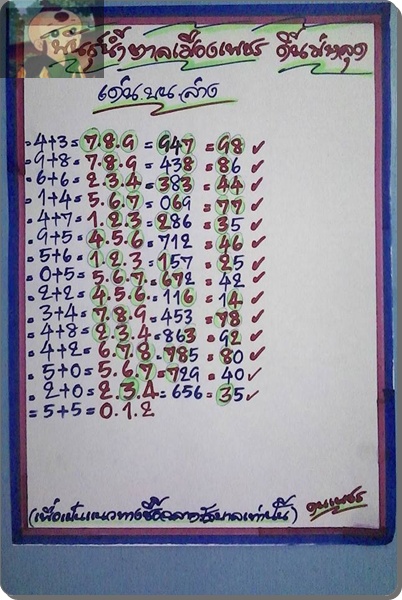 พันธุ์น้ำตาลเมืองเพชร ดิ้นบ่หลุด
เด่น.บน.ล่าง
4+3=7.8.9=947=98✓
9+8=7.8.9=438=86✓
6+6=2.3.4=383=44✓
1+4=5.6.7=069=77✓
4+7=1.2.3=286=35✓
9+5=4.5.6=712=46✓
5+6=1.2.3=157=25✓
0+5=5.6.7=672=42✓
2+2=4.5.6=116=14✓
3+4=7.8.9=453=78✓
4+8=2.3.4=863=92✓
4+2=6.7.8=785=80✓
5+0=5.6.7=729=40✓
2+0=2.3.4=656=35✓
=5+5=0.1.2
(เพื่อเป็นแนวทางซื้อฉลากรัฐบาลเท่านั้น) ฅนเพชร